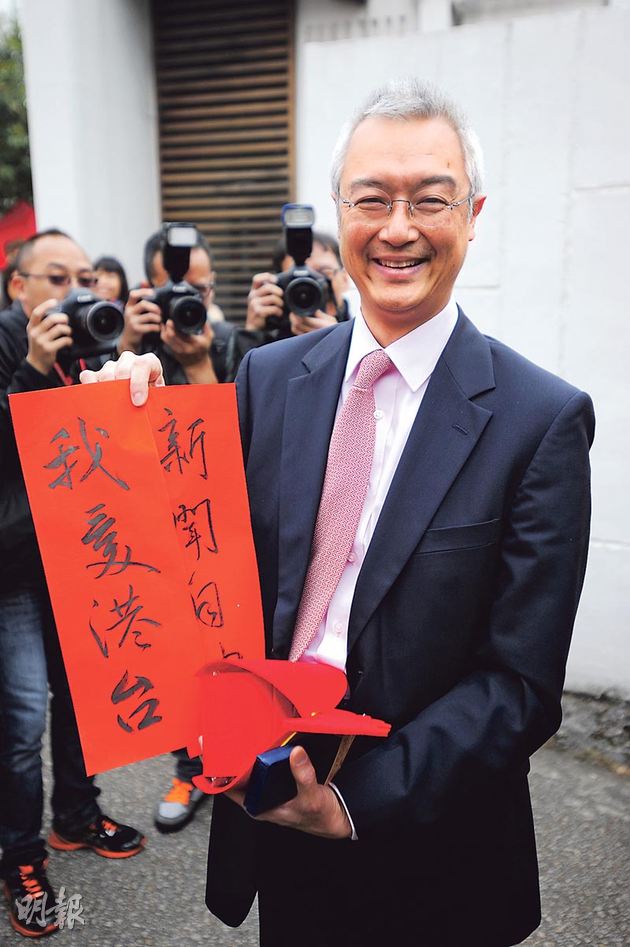 新聞自
我愛港台
明報